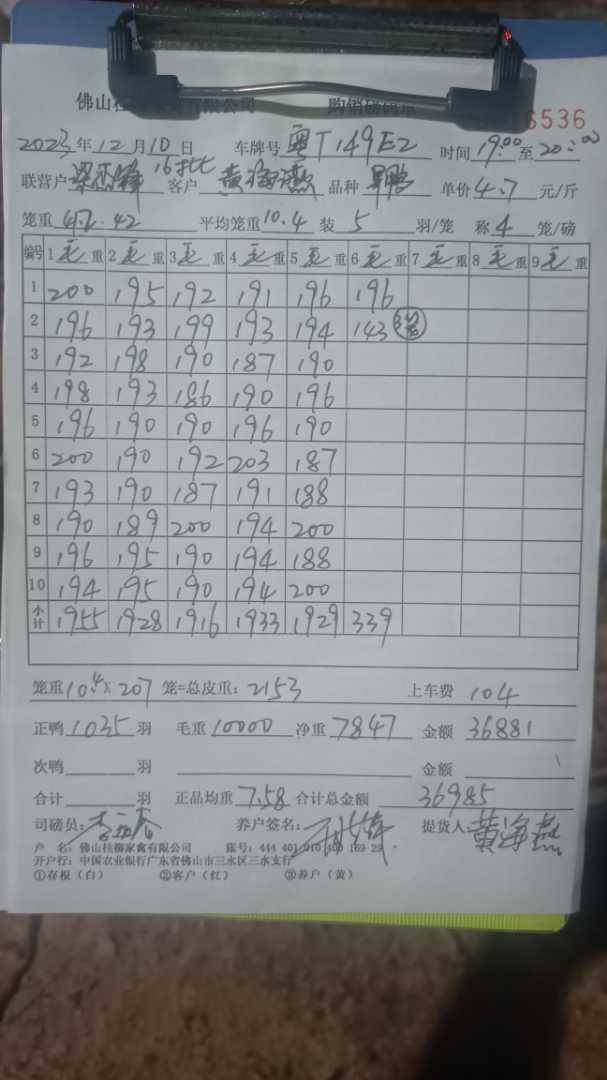 佛山桂柳家禽有限公司 购销磅码单
6536
2023年12月10日 车牌号 粤T149E2 时间19:00至20:00
联营户 16批 客户 黄海燕 品种 单价4.7元/斤
笼重 42.42 平均笼重10.4 装 5 羽/笼 称 4 笼/磅
编号 1毛重 2毛重 3毛重 4毛重 5毛重 6毛重 7毛重 8毛重 9毛重
1 200 195 192 191 196 196
2 196 193 199 193 194 143
3 192 198 190 187 190
4 198 193 186 190 196
5 196 190 190 196 190
6 200 190 192 203 187
7 193 190 187 191 188
8 190 189 200 194 200
9 196 195 190 194 188
10 194 195 190 194 200
小计 1955 1928 1916 1933 1929 339
笼重10.4X207笼=总皮重:2153 上车费 104
正鸭1035羽 毛重10000 净重7847 金额36881
次鸭 羽 金额
合计 羽 正品均重7.58 合计总金额 36985
司磅员: 养户签名: 提货人 黄海燕
户 名:佛山桂柳家禽有限公司 账号:444 401 010 400 169 29
开户行:中国农业银行广东省佛山市三水区三水支行
①存根(白) ②客户(红) ③养户(黄)